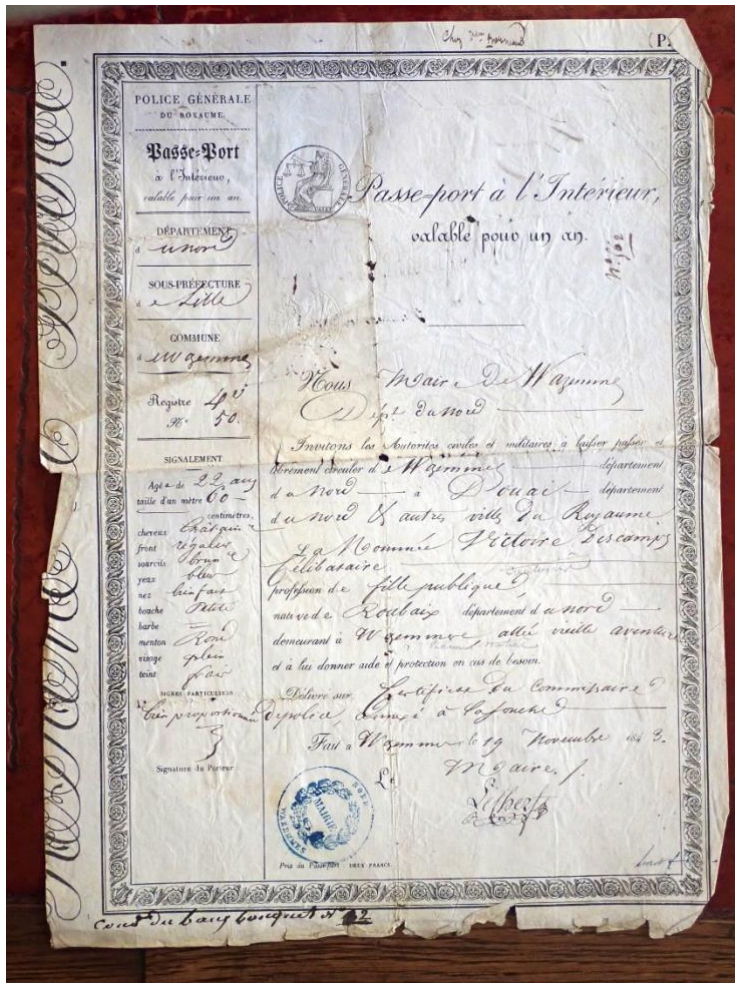 Chez Mme
(P.
POLICE GÉNÉRALE
DU ROYAUME.
Passe-Port
à l'Intérieur,
valable pour un an.
DÉPARTEMENT
du nord
SOUS-PRÉFECTURE
de Lille
COMMUNE
de Wazemmes
Registre 4e
N.° 50.
SIGNALEMENT
Agée de 22 ans
taille d'un mètre 60
centimètres.
cheveux châtains
front régulier
sourcils bruns
yeux bleus
nez bien fait
bouche petite
barbe —
menton Rond
visage plein
teint clair
SIGNES PARTICULIERS
bien proportionnée
Signature du Porteur
POLICE GÉNÉRALE
Passe-port à l'Intérieur,
valable pour un an.
N° 502
Nous Maire De Wazemmes
Dépt. du nord
Invitons les Autorités civiles et militaires à laisser passer et
librement circuler de Wazemmes département
du Nord à Douai département
du nord & autres villes du Royaume
La Nommée Victoire Descamps
Célibataire
profession de fille publique
native de Roubaix département du nord
demeurant à Wazemmes allée vieille aventure
et à lui donner aide et protection en cas de besoin.
Délivré sur Certificat du Commissaire
De police, annexé à la souche
Fait à Wazemmes le 19 Novembre 1843.
Le Maire.
MAIRIE
WAZEMMES
NORD
Prix du Passe-port : DEUX FRANCS.